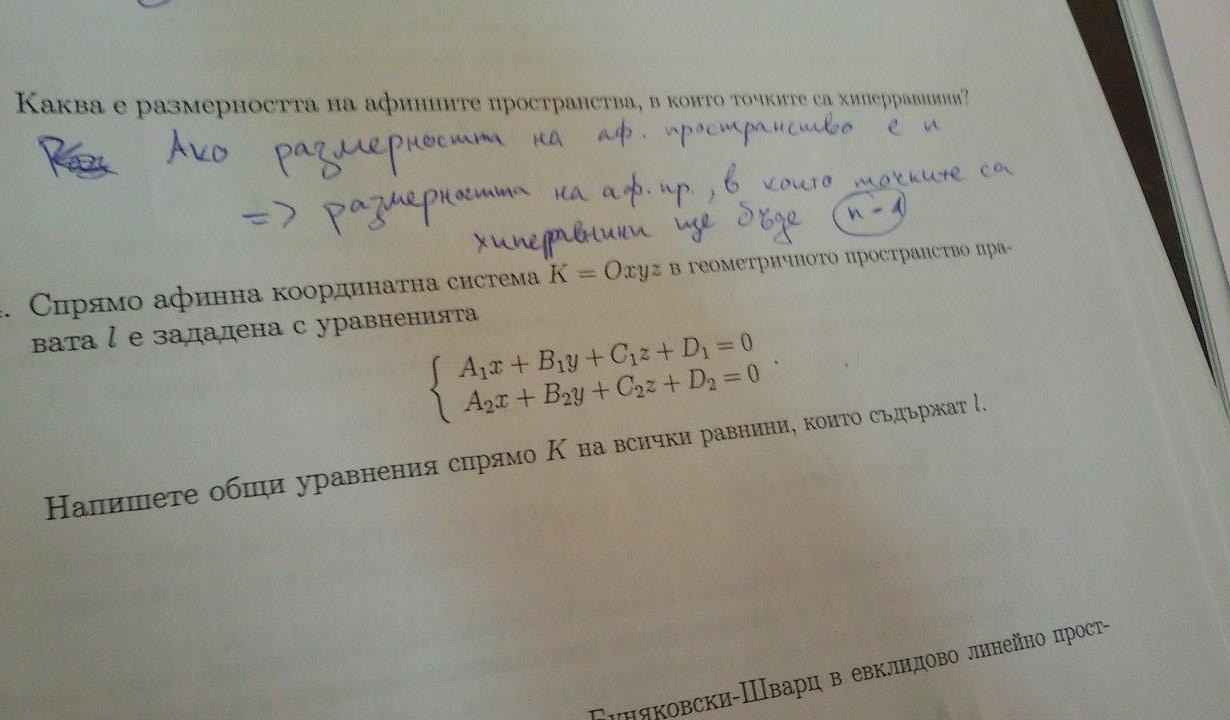 Каква е размерността на афинните пространства, в които точките са хиперравнини?
Ако размерността на аф. пространство е n
=> размерността на аф. пр., в които точките са
хиперравнини ще бъде n-1
. Спрямо афинна координатна система K = Oxyz в геометричното пространство пра-
вата l е зададена с уравненията
A₁x + B₁y + C₁z + D₁ = 0
A₂x + B₂y + C₂z + D₂ = 0 .
Напишете общи уравнения спрямо K на всички равнини, които съдържат l.
Буняковски-Шварц в евклидово линейно прост-